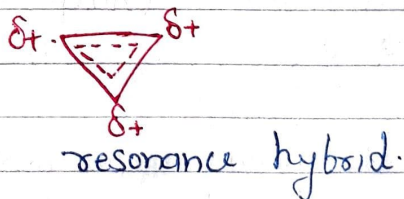 δ+ δ+
δ+
resonance hybrid.